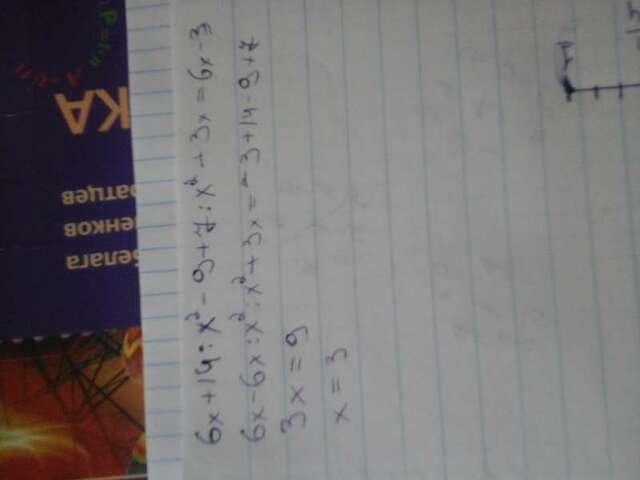 6x+14:x²-9+7:x²+3x=6x-3
6x-6x:x²:x²+3x=-3+14-9+7
3x=9
x=3
КА
ратцев
енков
Белага